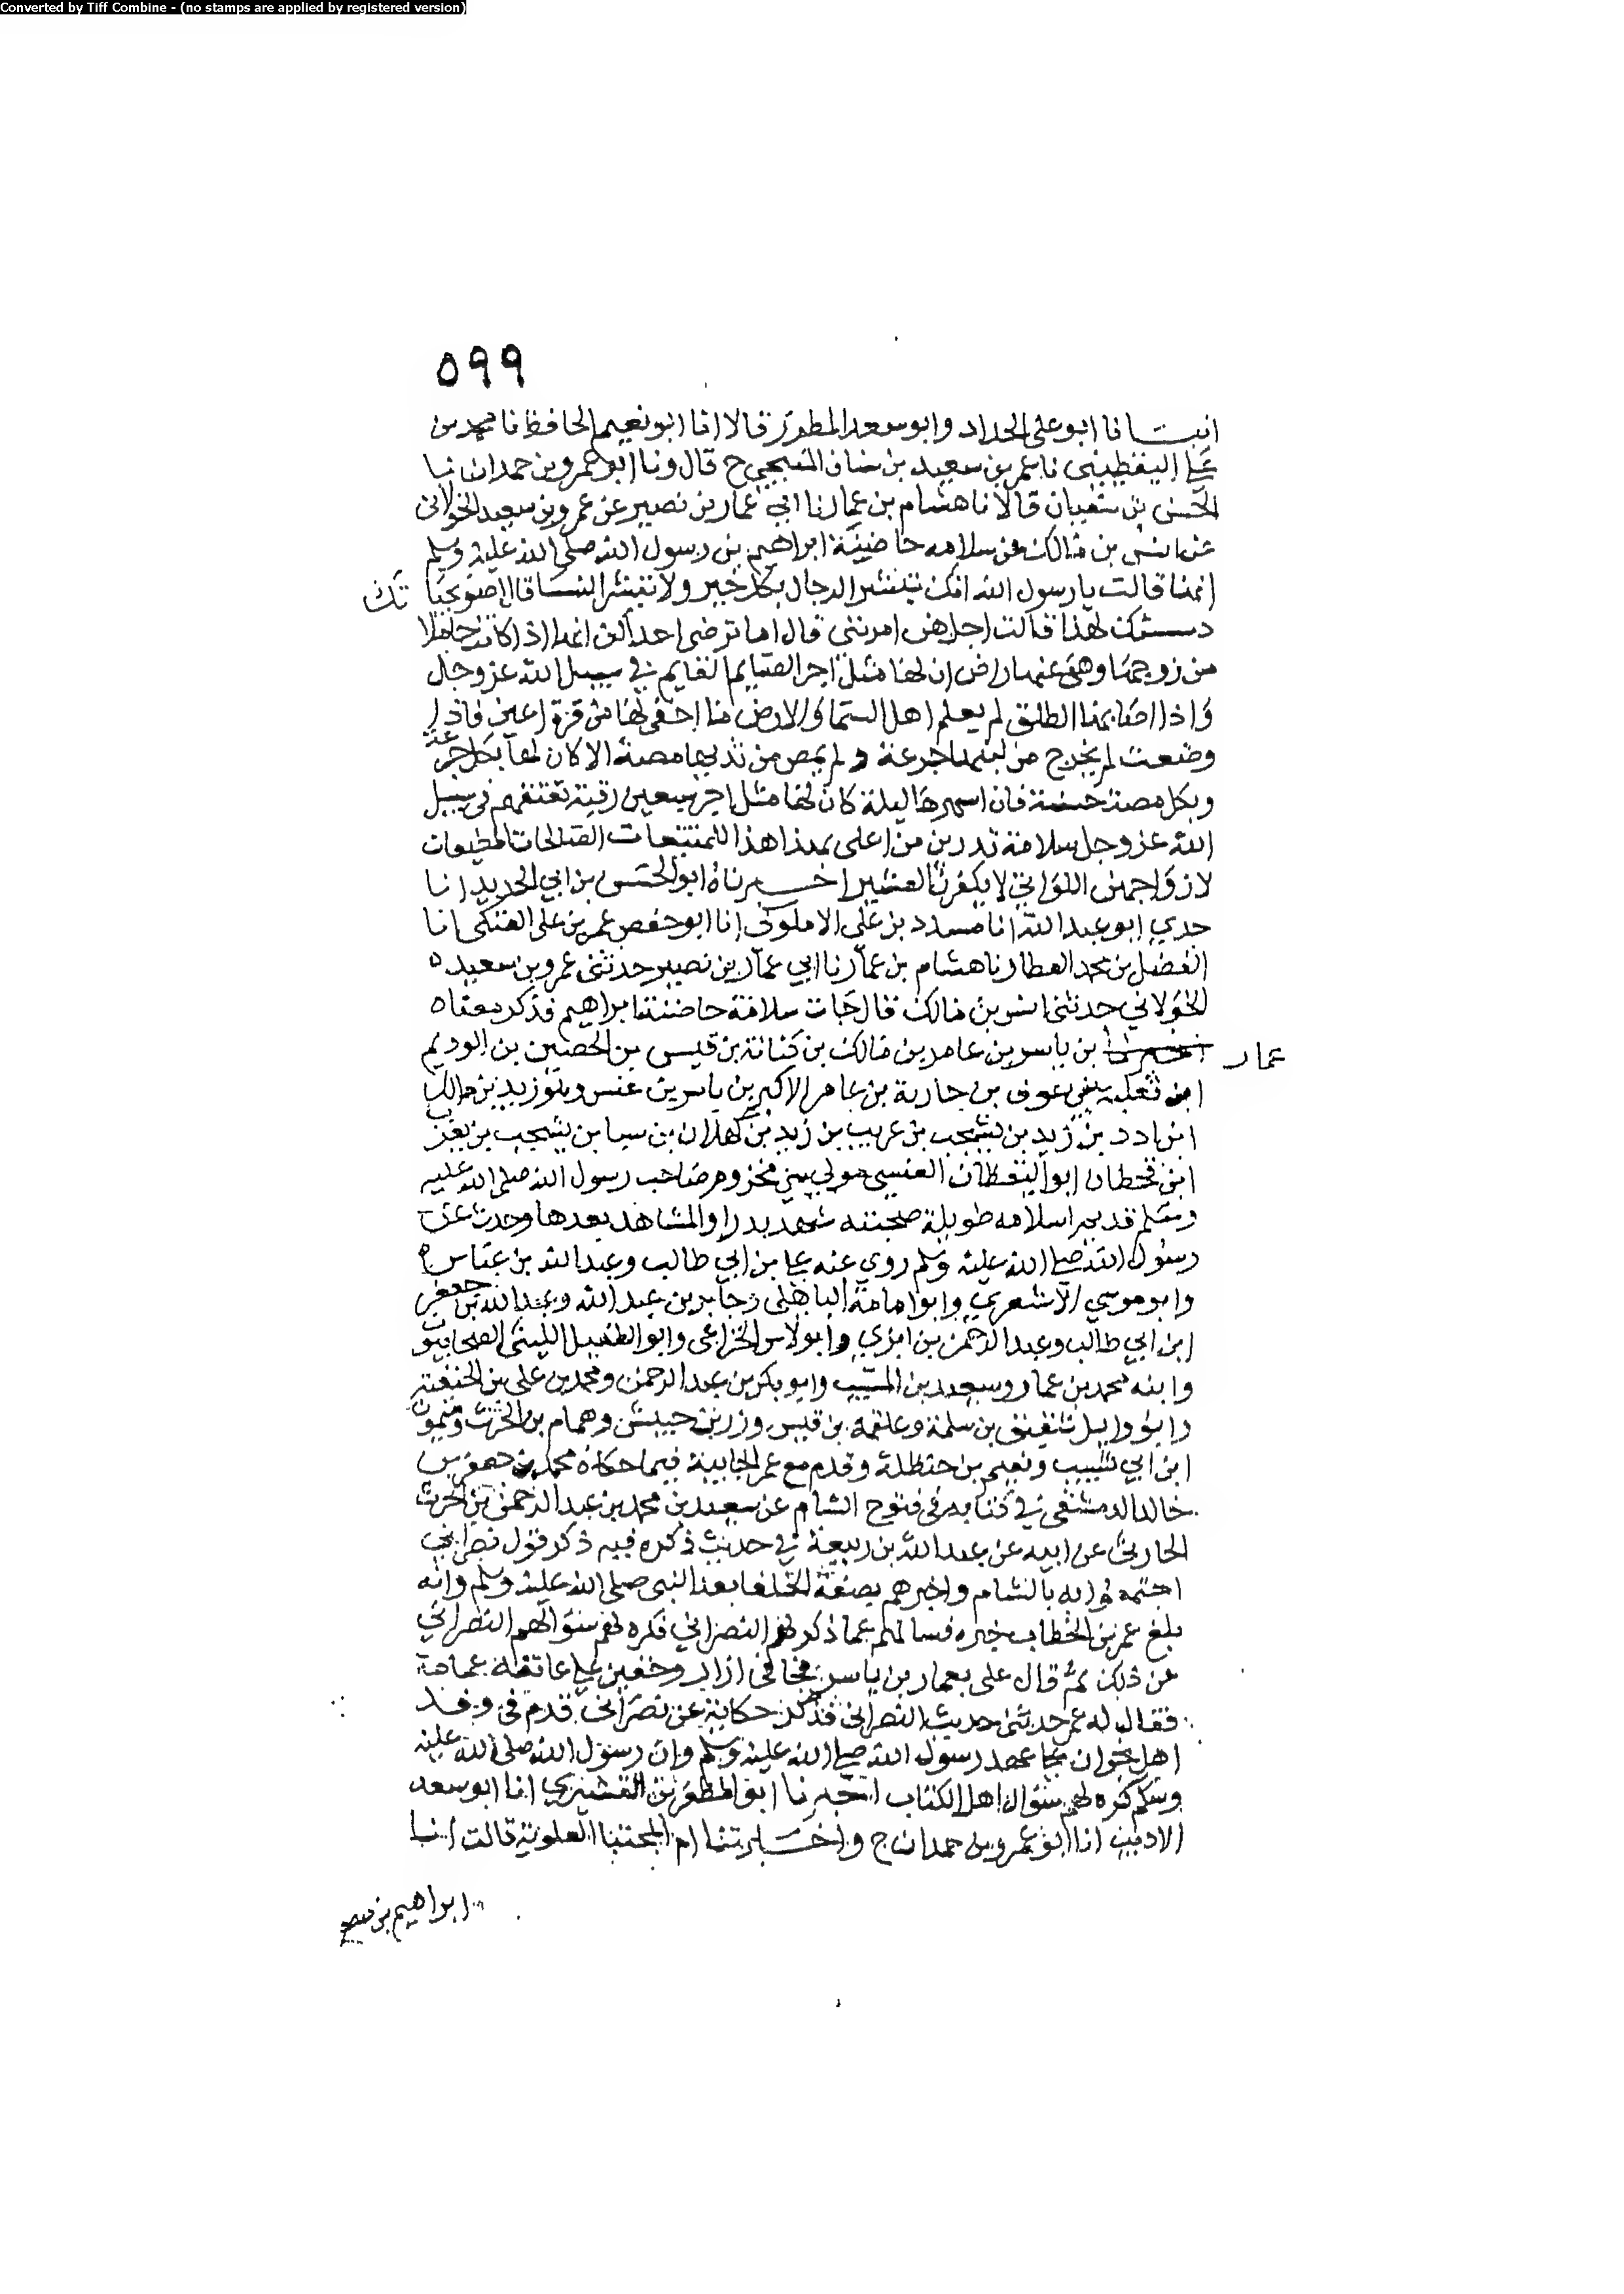 Converted by Tiff Combine - (no stamps are applied by registered version)
٥٩٩
انبـــانا ابو علي الحداد وابو سعد المطرز قالا انا ابو نعيم الحافظ نا محمد بن
علي اليقطيني نا عمر بن سعيد بن سنان المنبجي ح قال ونا ابو عمرو بن حمدان نبا
الحسن بن سفيان قالا نا هشام بن عمار نا ابي عمار بن نصير عن عمرو بن سعيد الخولاني
عن انس بن مالك عن سلامه حاضنة ابراهيم بن رسول الله صلى الله عليه وسلم
انها قالت يا رسول الله انك تبشر الرجال بكل خير ولا تبشر النسا قال اصويحبا تك
دسسنك لهذا قالت اجل هن امرنني قال اما ترضى احداكن انها اذا كانت حاملا
من زوجها وهو عنها راض ان لها مثل اجر الصايم القايم في سبيل الله عز وجل
واذا اصابها الطلق لم يعلم اهل السما والارض ما اخفي لها من قرة اعين فاذا
وضعت لم يخرج من لبنها جرعة ولم يمص من ثديها مصة الا كان لها بكل جرعة
وبكل مصة حسنة فان اسهرها ليلة كان لها مثل اجر سبعين رقبة تعتقهم في سبيل
الله عز وجل سلامة تدرين من اعني بهذا هذا للمتنعمات الصالحات المطيعات
لازواجهن اللواتي لا يكفرن العشير اخـــبرناه ابو الحسن بن ابي الحديد انا
جدي ابو عبد الله انا مسدد بن علي الاملوكي انا ابو حفص عمر بن علي العتكي انا
الفضل بن محمد العطار نا هشام بن عمار نا ابي عمار بن نصير حدثني عمرو بن سعيد ه
الخولاني حدثني انس بن مالك قال جات سلامة حاضنة ابراهيم فذكر معناه
عمار بن ياسر بن عامر بن مالك بن كنانة بن قيس بن الحصين بن الوديم
ابن ثعلبة بن عوف بن حارثة بن عامر الاكبر بن يام بن عنس وهو زيد بن مالك
ابن ادد بن زيد بن يشجب بن عريب بن زيد بن كهلان بن سبا بن يشجب بن يعرب
ابن قحطان ابو اليقظان العنسي مولى بني مخزوم صاحب رسول الله صلى الله عليه
وسلم قديم اسلامه طويلة صحبته شهد بدرا والمشاهد بعدها وحدث عن
رسول الله صلى الله عليه وسلم روى عنه علي بن ابي طالب وعبد الله بن عباس ه
وابو موسي الاشعري وابو امامة الباهلي وجابر بن عبد الله وعبد الله بن جعفر
ابن ابي طالب وعبد الرحمن بن ابزي وابو لاس الخزاعي وابو الطفيل الليثي الصحابيون
وابنه محمد بن عمار وسعيد بن المسيب وابو بكر بن عبد الرحمن ومحمد بن علي بن الحنفية
وابو وايل شقيق بن سلمة وعلقمة بن قيس وزر بن حبيش وهمام بن الحرث وميمون
ابن ابي شبيب ونعيم بن حنظلة وقدم مع عمر الجابية فيما حكاه محمد بن جعفر بن
خالد الدمشقي في كتابه في فتوح الشام عن سعيد بن محمد بن عبد الرحمن بن الحرث
الحارثي عن ابيه عن عبد الله بن ربيعة في حديث ذكره فيه ذكر قول نصراني
اجتمعوا به بالشام واخبرهم بصفة الخلفا بعد النبي صلى الله عليه وسلم وانه
بلغ عمر بن الخطاب خبره فسالهم عما ذكر لهم النصراني فكره لهم سؤالهم النصراني
عن ذلك ثم قال علي بعمار بن ياسر فجا في ازار وخفين علي عاتقه عمامة
فقال له عمر حدثني حديث النصراني فذكر حكاية عن نصراني قدم في وفد
اهل نجران علي عهد رسول الله صلى الله عليه وسلم وان رسول الله صلى الله عليه
وسلم كره لهم سؤال اهل الكتاب اخبرنا ابو المظفر بن القشيري انا ابو سعد
الاديب انا ابو عمرو بن حمدان ح واخـــبرتنا ام المجتبا العلوية قالت انبا
ابراهيم بن